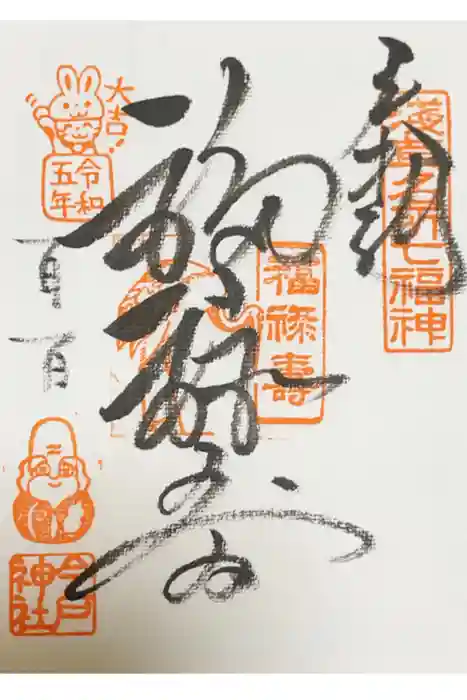 奉拝
浅草名所七福神
福禄寿
福禄寿
大吉!
令和
五年
一月
一日
今戸
神社